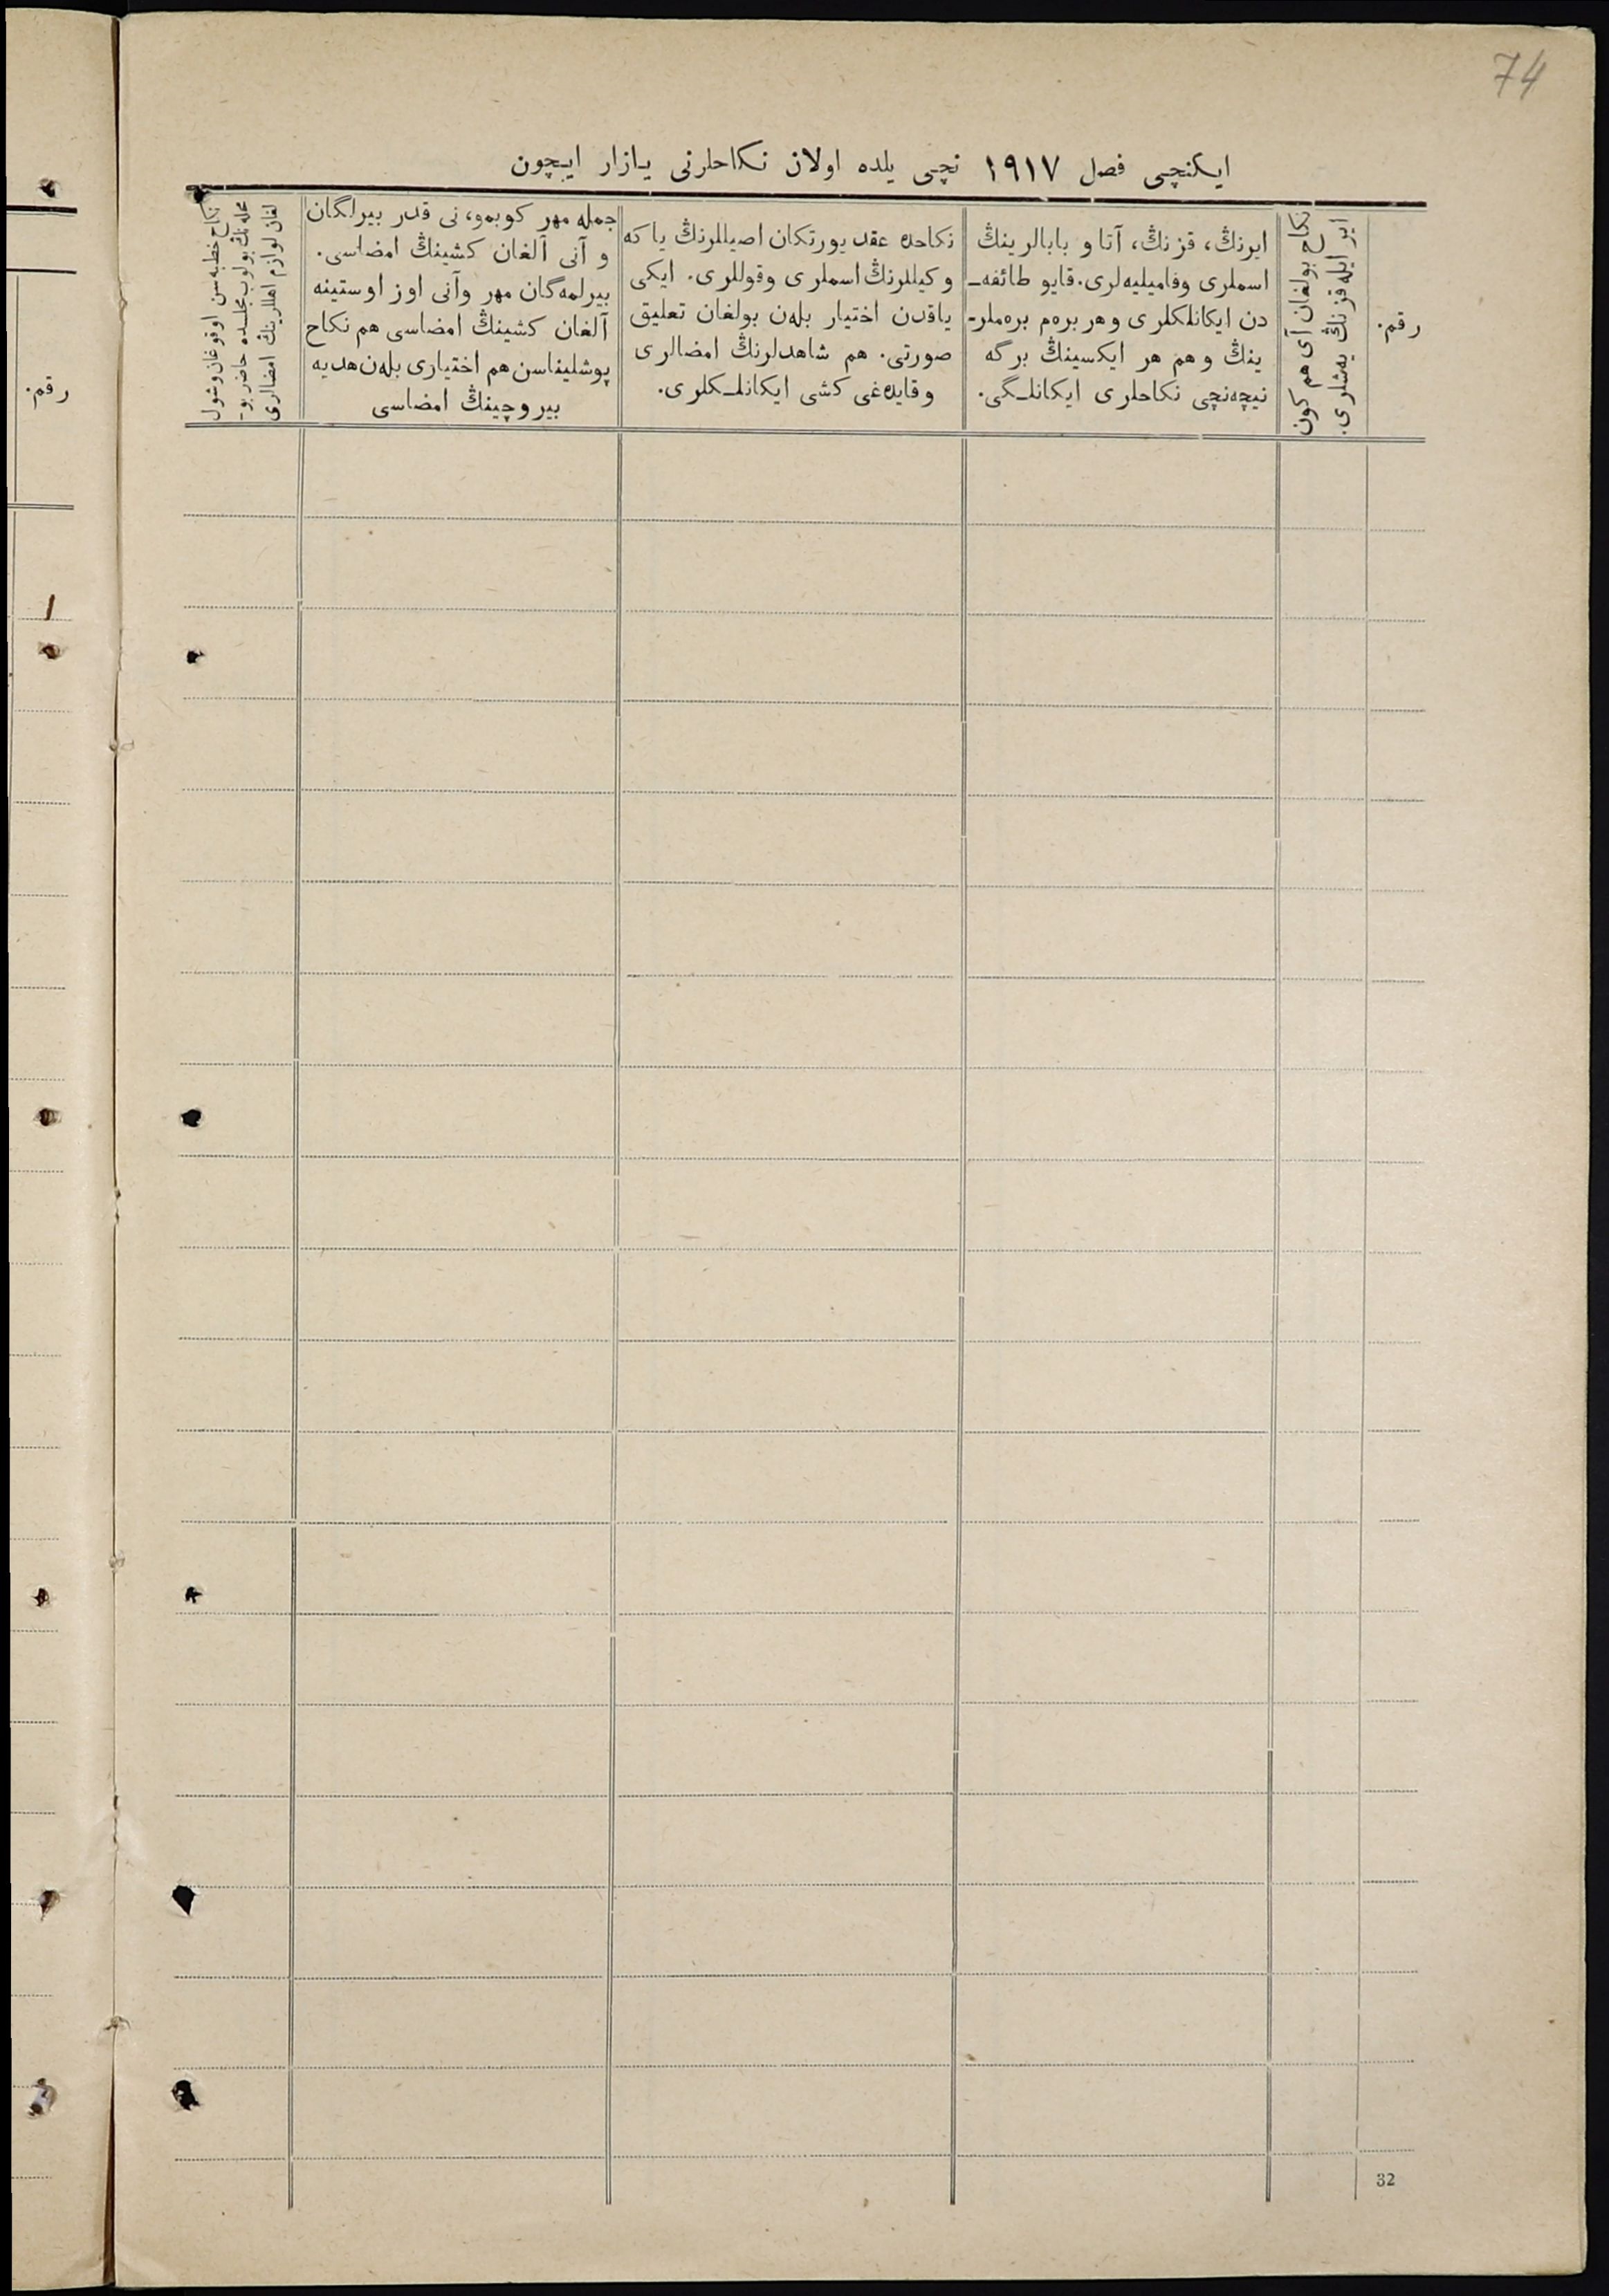 74
ایکنچی فصل ١٩١٧ نچی یلده اولان نکاحلرنی یازار ایچون
رقم.
نکاح بولغان آی هم کون
ایر ایله قزنڭ یه‌شلری.
ایرنڭ، قزنڭ، آتا و بابالرینڭ
اسملری وفامیلیه‌لری. قایو طائفه‌ـ
دن ایکانلکلری وهر بره‌م بره‌ملر-
ینڭ وهم هر ایکسینڭ برگه
نیچه‌نچی نکاحلری ایکانلـگی.
نکاحده عقد یورتکان اصیللرنڭ یا که
وکیللرنڭ اسملری وقوللری. ایکی
یاقدن اختیار بله‌ن بولغان تعلیق
صورتی. هم شاهدلرنڭ امضالری
وقایده‌غی کشی ایکانلـکلری.
جمله مهر کوبمو، نی قدر بیرلگان
و آنی آلغان کشینڭ امضاسی.
بیرلمه‌گان مهر وآنی اوز اوستینه
آلغان کشینڭ امضاسی هم نکاح
پوشلیناسن هم اختیاری بله‌ن هدیه
بیروچینڭ امضاسی
نکاح خطبه‌سن اوقوغان وشول
محله‌نڭ بولوب مجلسده حاضر بو-
لغان لوازم اهللرینڭ امضالری
رقم.
١
32